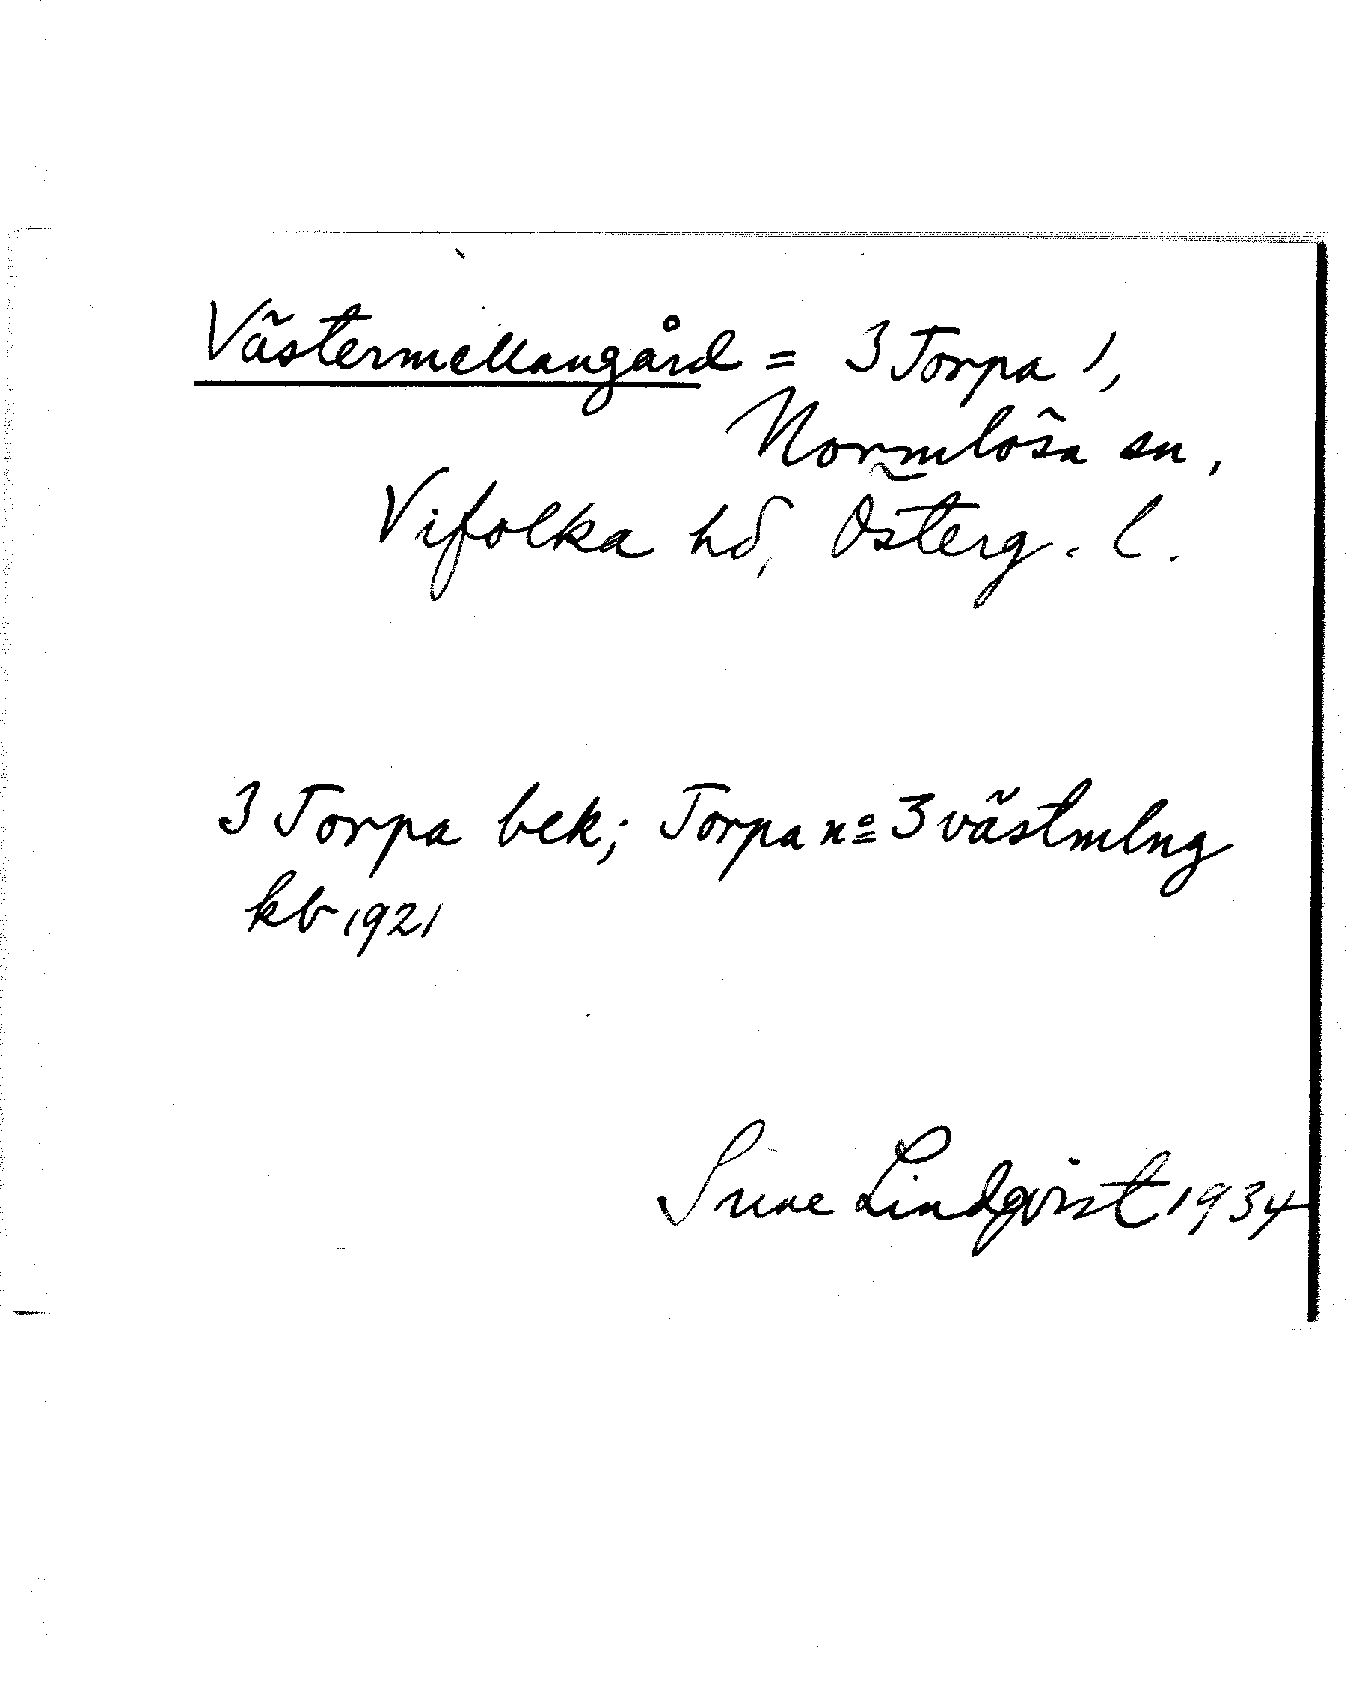 Västermellangård = 3 Torpa 1,
Normlösa sn,
Vifolka hd, Österg. l.
3 Torpa bek; Torpa nº 3 västmlng
kb 1921
Sune Lindqvist 1934